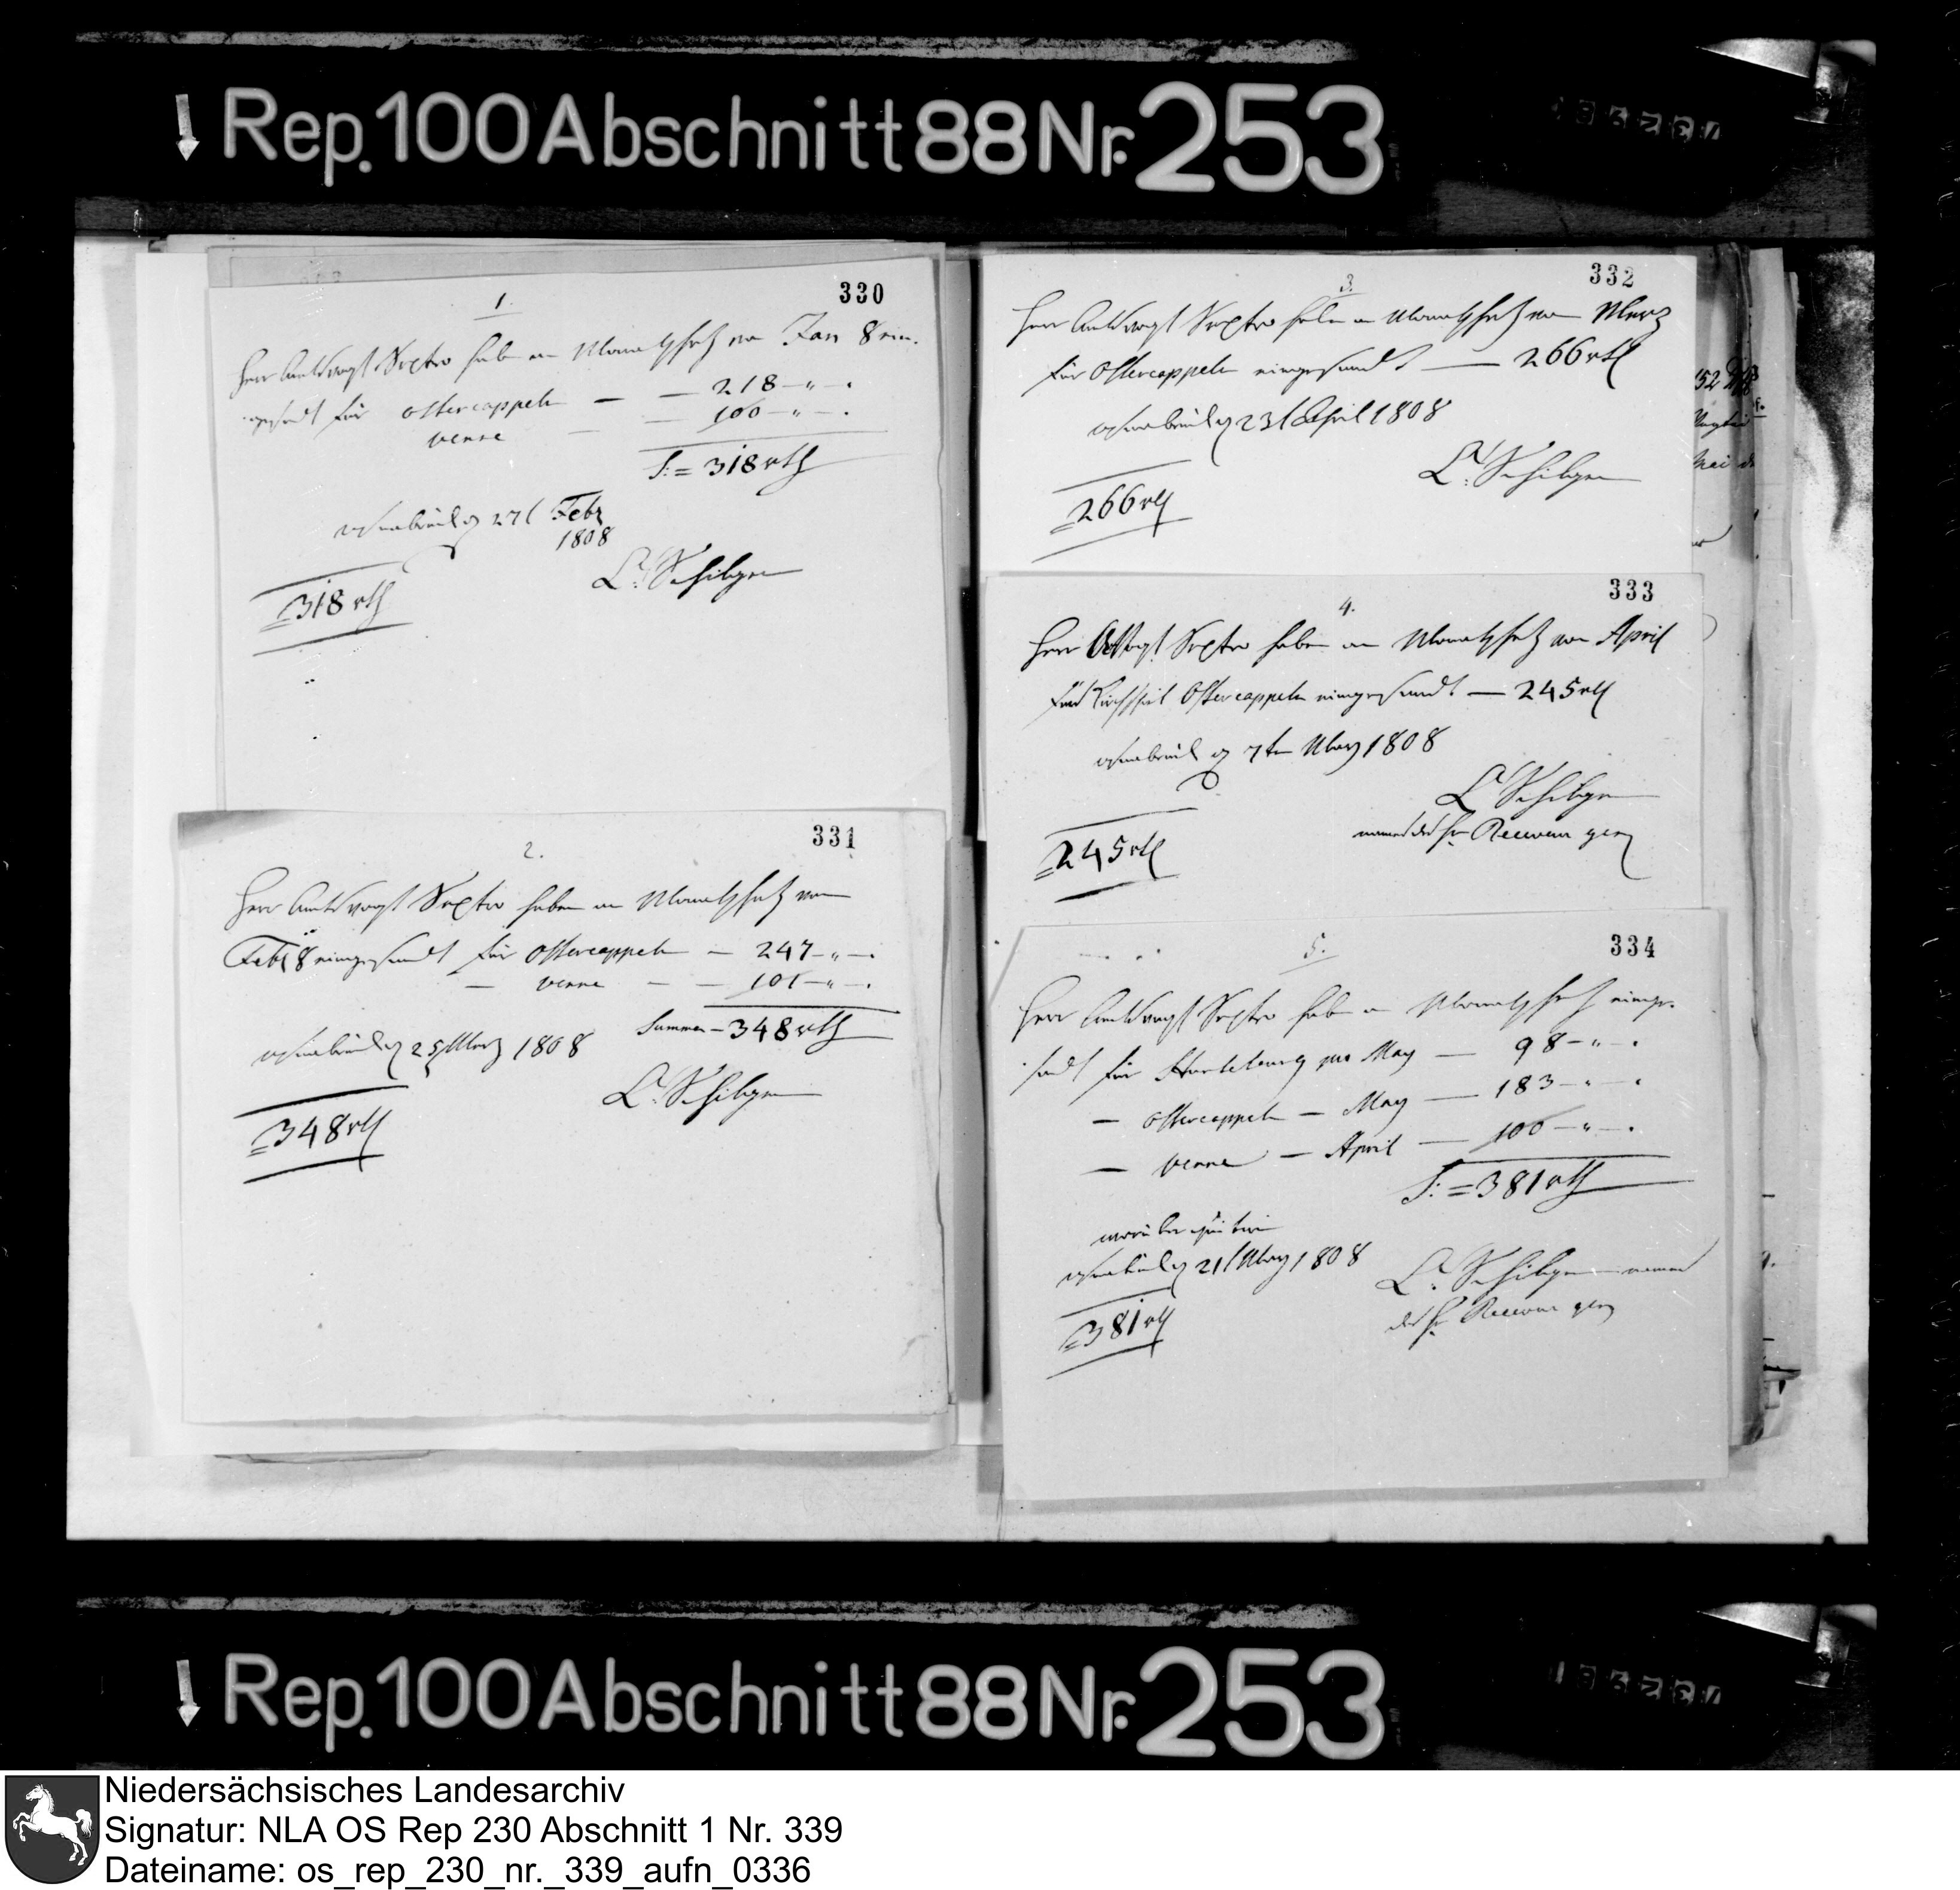 Rep. 100 Abschnitt 88 Nr. 253
330
1.
Herr Amtsvogt Sextro haben an Monatschatz von Jan 8 ein-
gesandt für Ostercappeln — — 218 - „ - .
Venne — — 100 - „ - .
S: = 318 rth
Osnabrück d 27t Febr
1808
Schilgen
318 rth
331
2.
Herr Amtsvogt Sextro haben an Monatschatz von
Febr 8 eingesandt für Ostercappeln — 247 - „ - .
— Venne — — 101 - „ - .
Summa - 348 rth
Osnabrück d 25t Merz 1808
Schilgen
348 rth
332
3.
Herr Amtsvogt Sextro haben an Monatschatz von Merz
für Ostercappeln eingesandt — 266 rth
Osnabrück d 23t April 1808
Schilgen
266 rth
333
4.
Herr Sextro haben an Monatschatz von April
für Kirchspiel Ostercappeln eingesandt — 245 rth
Osnabrück d 7ten May 1808
Schilgen
245 rth
334
5.
Herr Amtsvogt Sextro haben an Monatschatz einge-
sandt für Hunteburg pro May — 98 - „ - .
— Ostercappeln — May — 183 - „ - .
— Venne — April — 100 - „ - .
S: = 381 rth
worüber quitire
Osnabrück d 21t May 1808
Schilgen
381 rth
Rep. 100 Abschnitt 88 Nr. 253
Niedersächsisches Landesarchiv
Signatur: NLA OS Rep 230 Abschnitt 1 Nr. 339
Dateiname: os_rep_230_nr._339_aufn_0336